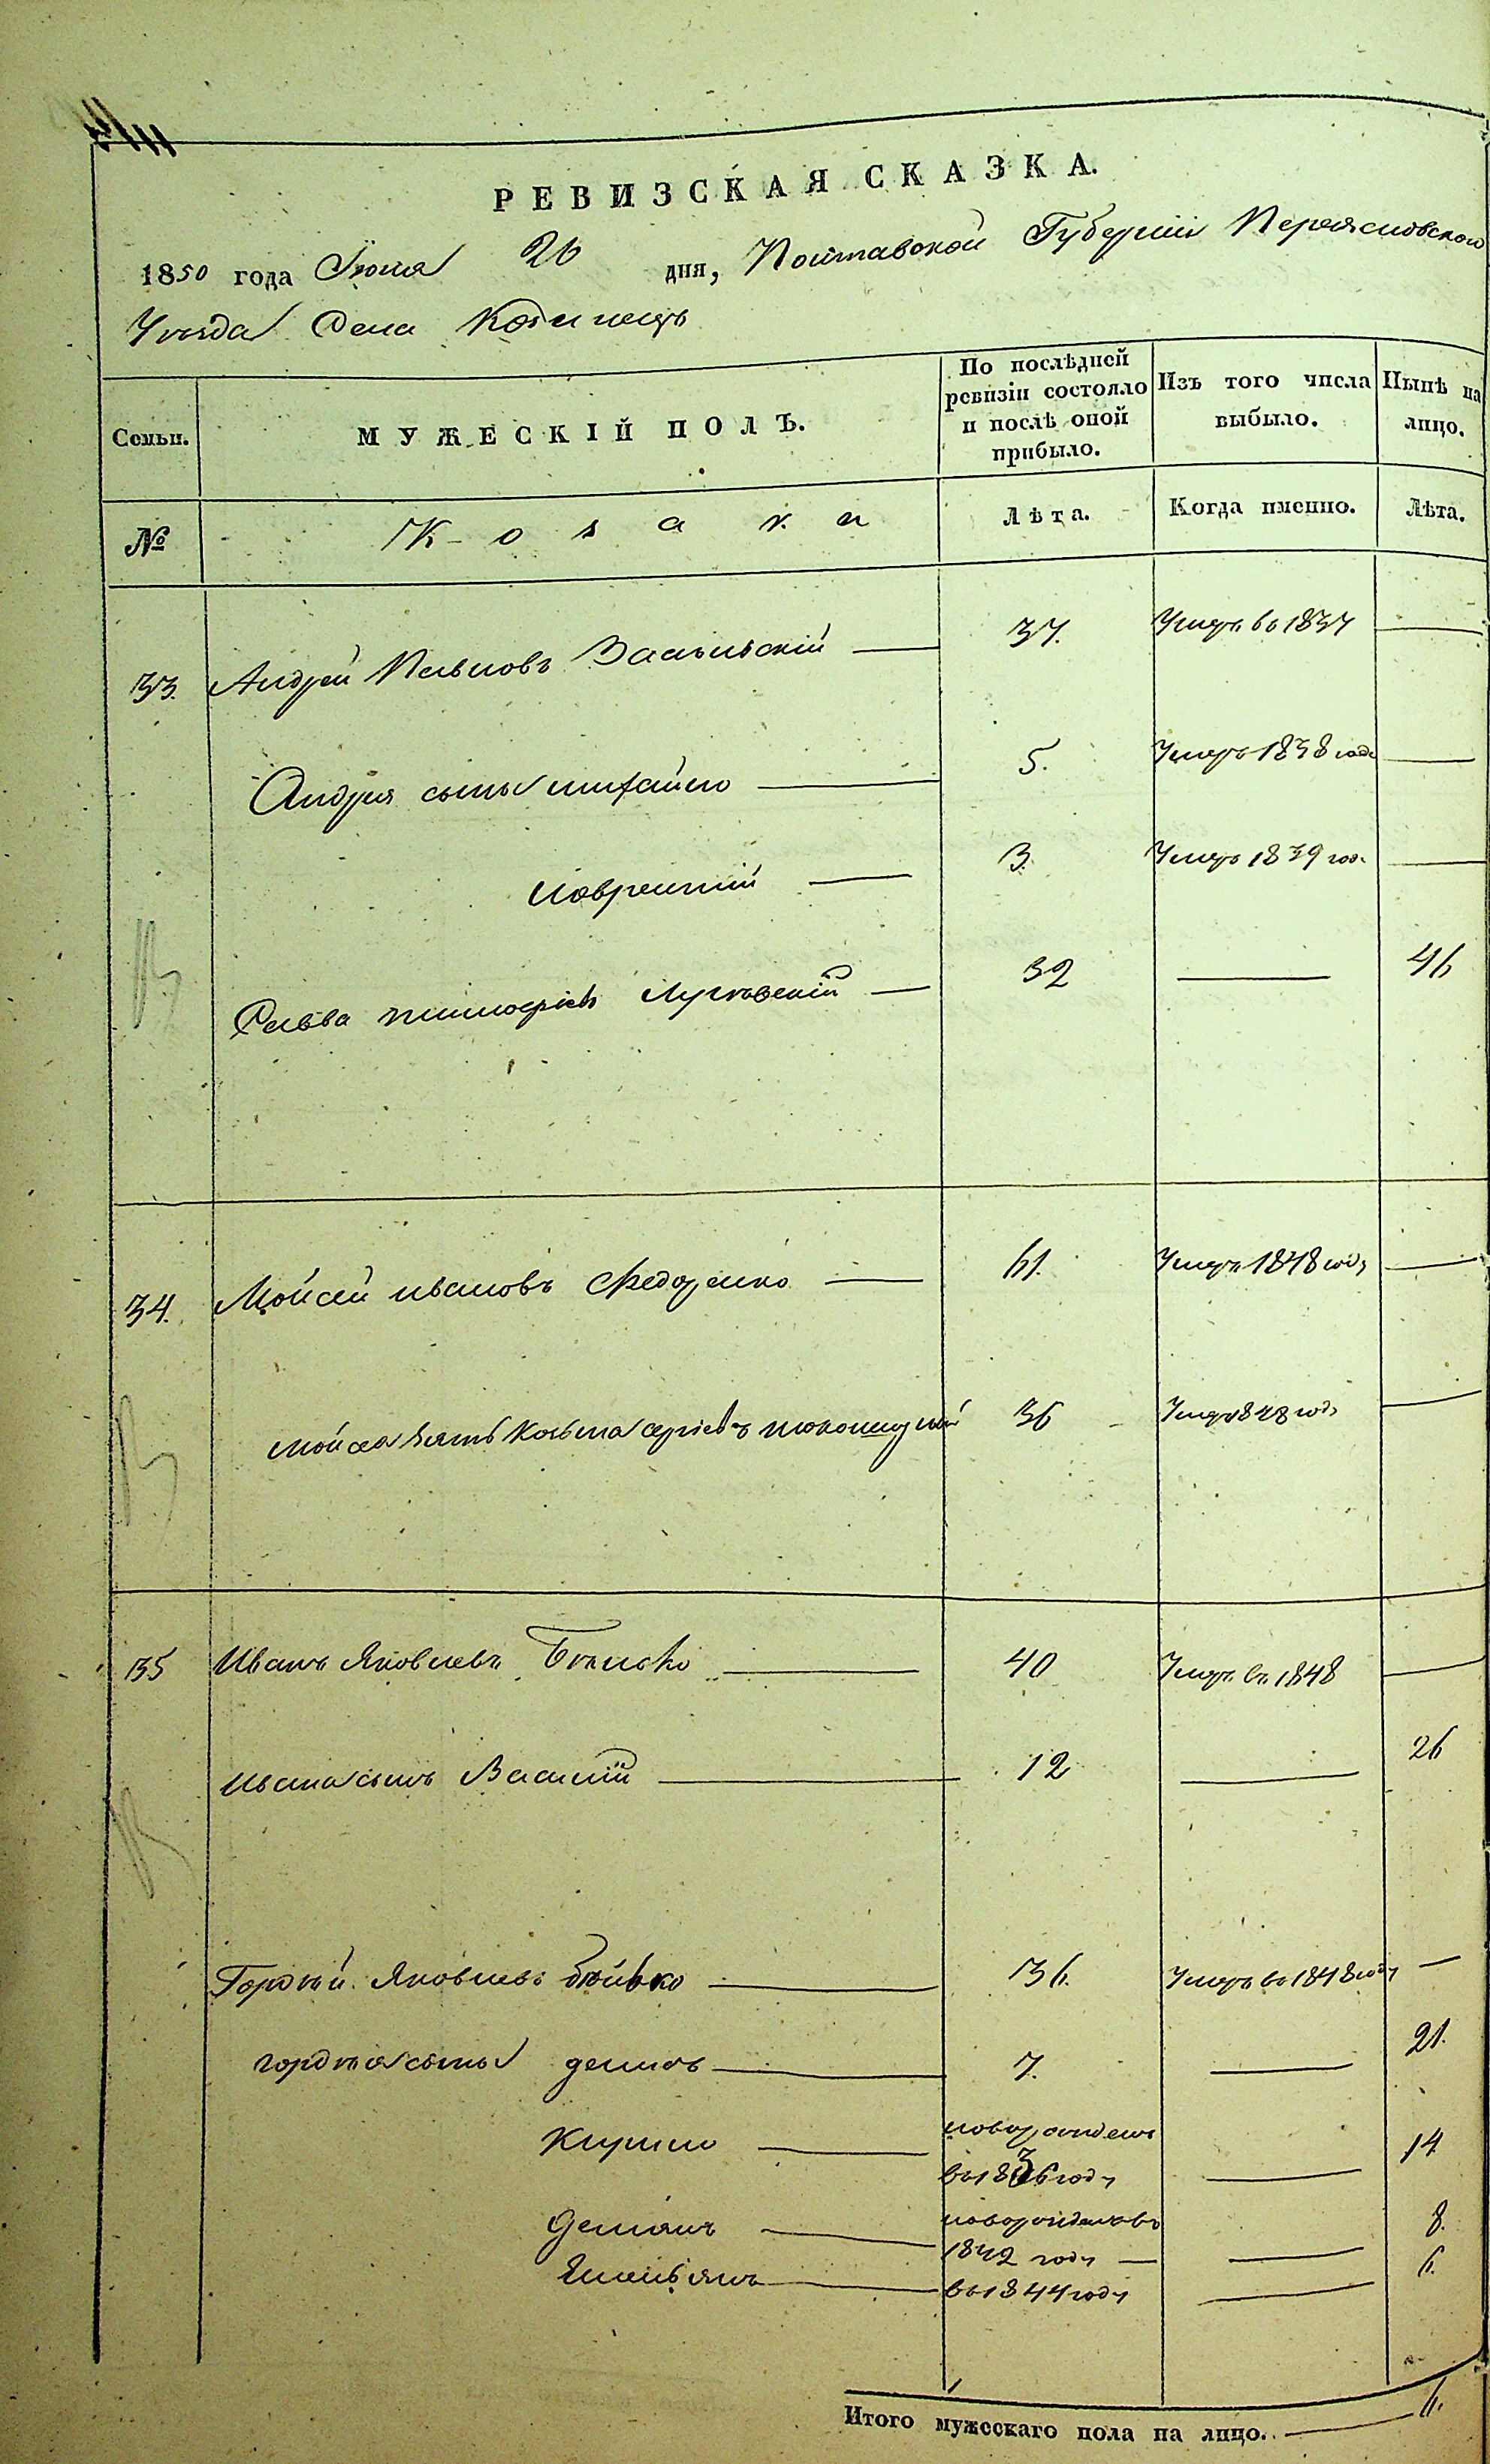 РЕВИЗСКАЯ СКАЗКА.
1850 года Іюня 26 дня, Полтавской Губерніи Переясловского
Уѣзда Села
По послѣдней
ревизіи состояло
и послѣ оной
прибыло.
Изъ того числа
выбыло.
Нынѣ на
лицо.
Семьи.
МУЖЕСКІЙ ПОЛЪ.
№
Козаки
Лѣта.
Когда именно.
Лѣта.
33. Андрей Павловъ 37. Умеръ въ 1837
Андрея сыны михайло 5. Умеръ 1838 года
лаврентій 3. Умеръ 1839 год.
Савва тимофіевъ 32 46
34. Мойсей ивановъ Федоренко 61. Умеръ 1848 году
мойсея зять Козьма сергіевъ 36 Умеръ 1848 году
35 Иванъ Яковлевъ 40 Умеръ въ 1848
ивана сынъ Василій 12 26
Гордѣй Яковлевъ 36. Умеръ въ 1848 году
гордѣя сыны 7. 21.
Кирило новорожденъ 14
въ 1836 году
Демянъ новорожденъ въ 8.
1842 году
Емельянъ въ 1844 году 6.
Итого мужескаго пола на лицо. 6.